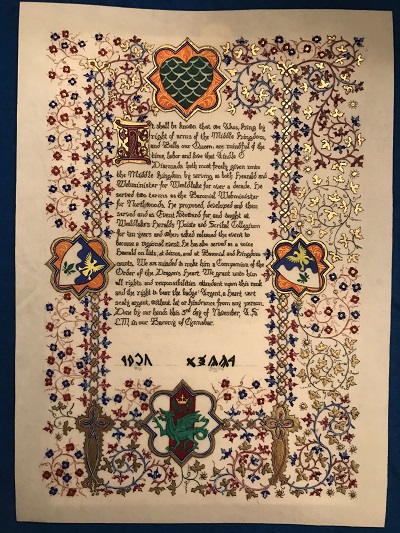 It shall be known that we Eikus, King by
right of arms of the Middle Kingdom,
and Bella our Queen, are mindful of the
time, labor and love that
hath most freely given unto
the Middle Kingdom by serving as both Herald and
Webminister for over a decade. He
served two terms as the Baronial Webminister
for Northwoods. He proposed, developed and then
served and as Event Steward for, and taught at
Heralds Points and Scribal Collegium
for ten years and when asked released the event to
become a regional event. He has also served as a voice
herald on lists, at demos, and at Baronial and Kingdom
courts. We are minded to make him a Companion of the
Order of the Dragon's Heart. We grant unto him
all rights and responsibilities attendant upon this rank
and the right to bear the badge "Argent, a heart vert
scaly argent, without let or hindrance from any person.
Done by our hands this 3rd day of November, A.S.
in our Barony of Cynnabar.